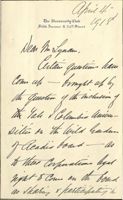 The University Club
Fifth Avenue & 54th Street
April 4th
1918
Dear Mr Lyman
Certain questions have
come up — brought up by
the question of the inclusion of
the Yale & Columbia Univer-
sities in the Wild Gardens
of Acadia board — as
to these Corporations legal
right to come on the board
as sharing & participating in